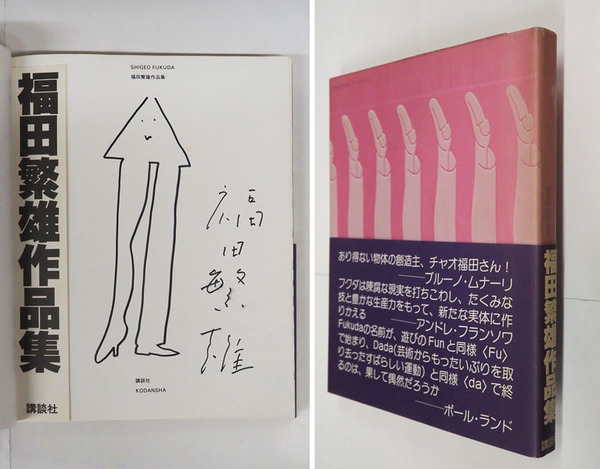 福田繁雄作品集
講談社
SHIGEO FUKUDA
福田繁雄作品集
福田繁雄
講談社
KODANSHA
あり得ない物体の創造主、チャオ福田さん!
——ブルーノ・ムナーリ
フクダは陳腐な現実を打ちこわし、たくみな
技と豊かな生産力をもって、新たな実体に作
りかえる ——アンドレ・フランソワ
Fukudaの名前が、遊びのFunと同様〈Fu〉
で始まり、Dada(芸術からもったいぶりを取
り去ったすばらしい運動)と同様〈da〉で終
るのは、果して偶然だろうか
——ポール・ランド
福田繁雄作品集
講談社